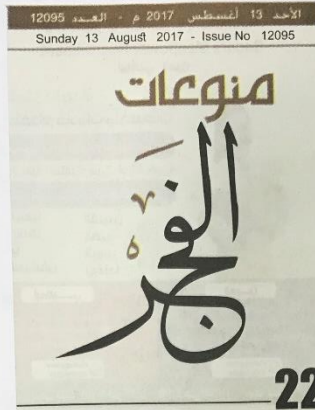 الأحد 13 أغسطس 2017 م - العـدد 12095
Sunday 13 August 2017 - Issue No 12095
منوعات
الفجر
22